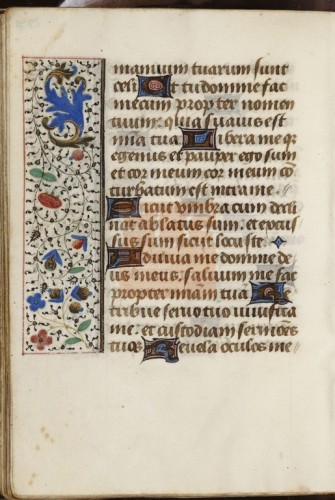 manuum tuarum sunt
celi Et tu domine fac
mecum propter nomen
tuum: quia suavis est
mia tua Libera me qr
egenus et pauper ego sum
et cor meum cor meum co
turbatum est intra me.
Sicut umbra cum decli
nat ablatus sum: et excus
sus sum sicut locuste.
Adiuva me domine de
us meus. salvum me fac
propter miam tua Re
tribue servo tuo vivifica
me: et custodiam sermoēs
tuos Revela oculos me